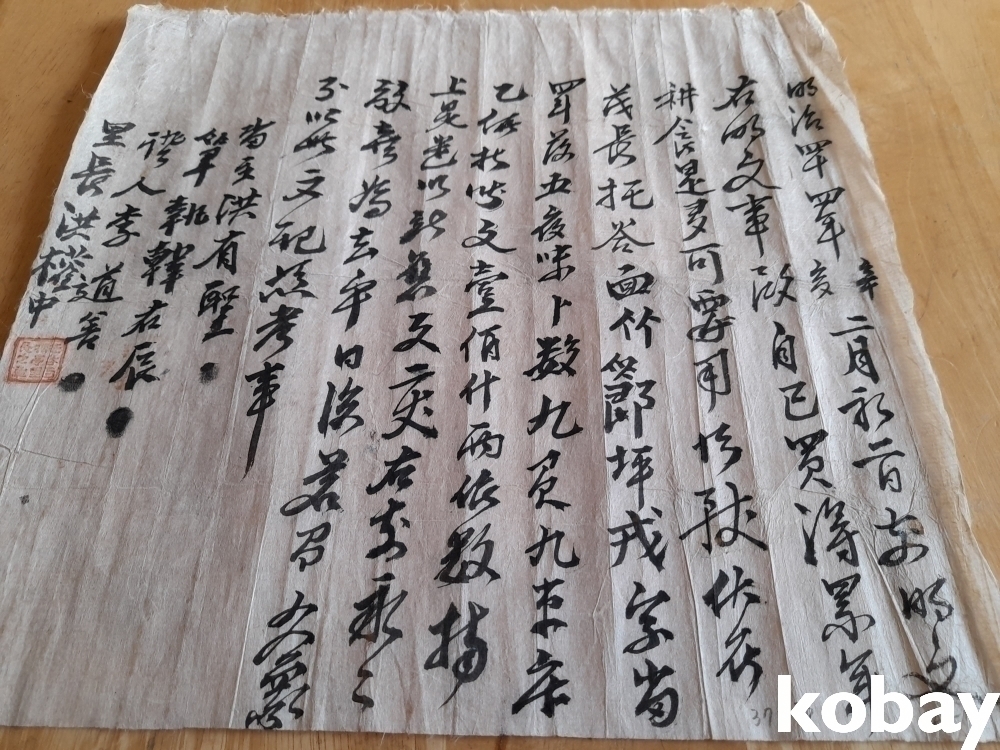 明治四十四年辛亥二月初二日 前明文
右明文事段自己買得累年
耕食是多可要用所致伏在
茂長托谷面竹節坪戎字畓
四十落五夜味卜數九負九束庫
乙 價折錢文壹佰什兩依數捧
上是遣以新舊文二丈右前永永
放賣爲去乎日後若有 人
則以此文記憑考事
畓主洪有聖
筆執韓右辰
證人李道善
里長洪 中
kobay
37